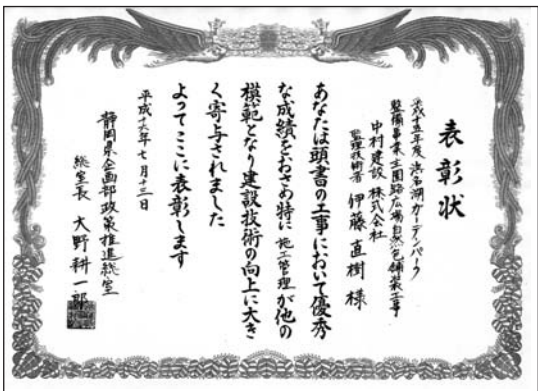 表彰状
平成十五年度 浜名湖ガーデンパーク
整備事業主園路広場自然色舗装工事
中村建設株式会社
監理技術者 伊藤直樹様
あなたは頭書の工事において優秀
な成績をおさめ特に施工管理が他の
模範となり建設技術の向上に大き
く寄与されました
よってここに表彰します
平成十六年七月十三日
静岡県企画部政策推進総室
総室長 大野耕一郎